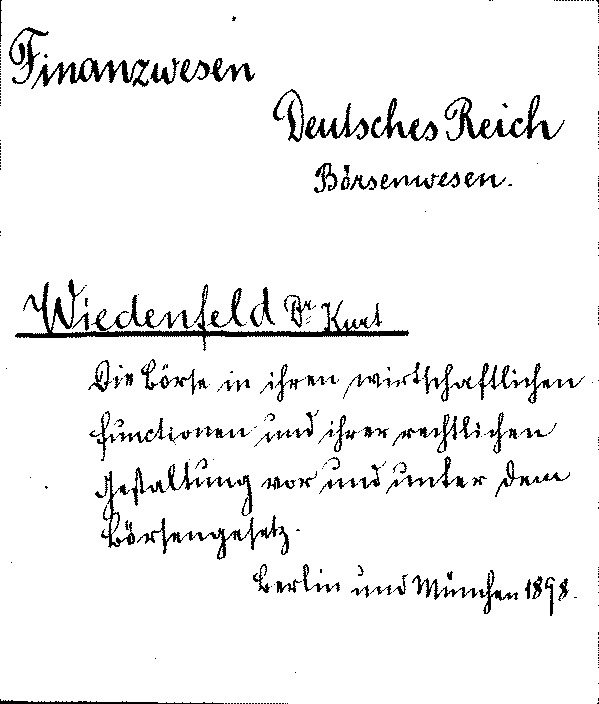 Finanzwesen
Deutsches Reich
Börsenwesen.
Wiedenfeld Dr Kurt
Die Börse in ihren wirtschaftlichen
Functionen und ihrer rechtlichen
Gestaltung vor und unter dem
Börsengesetz.
Berlin und München 1898.